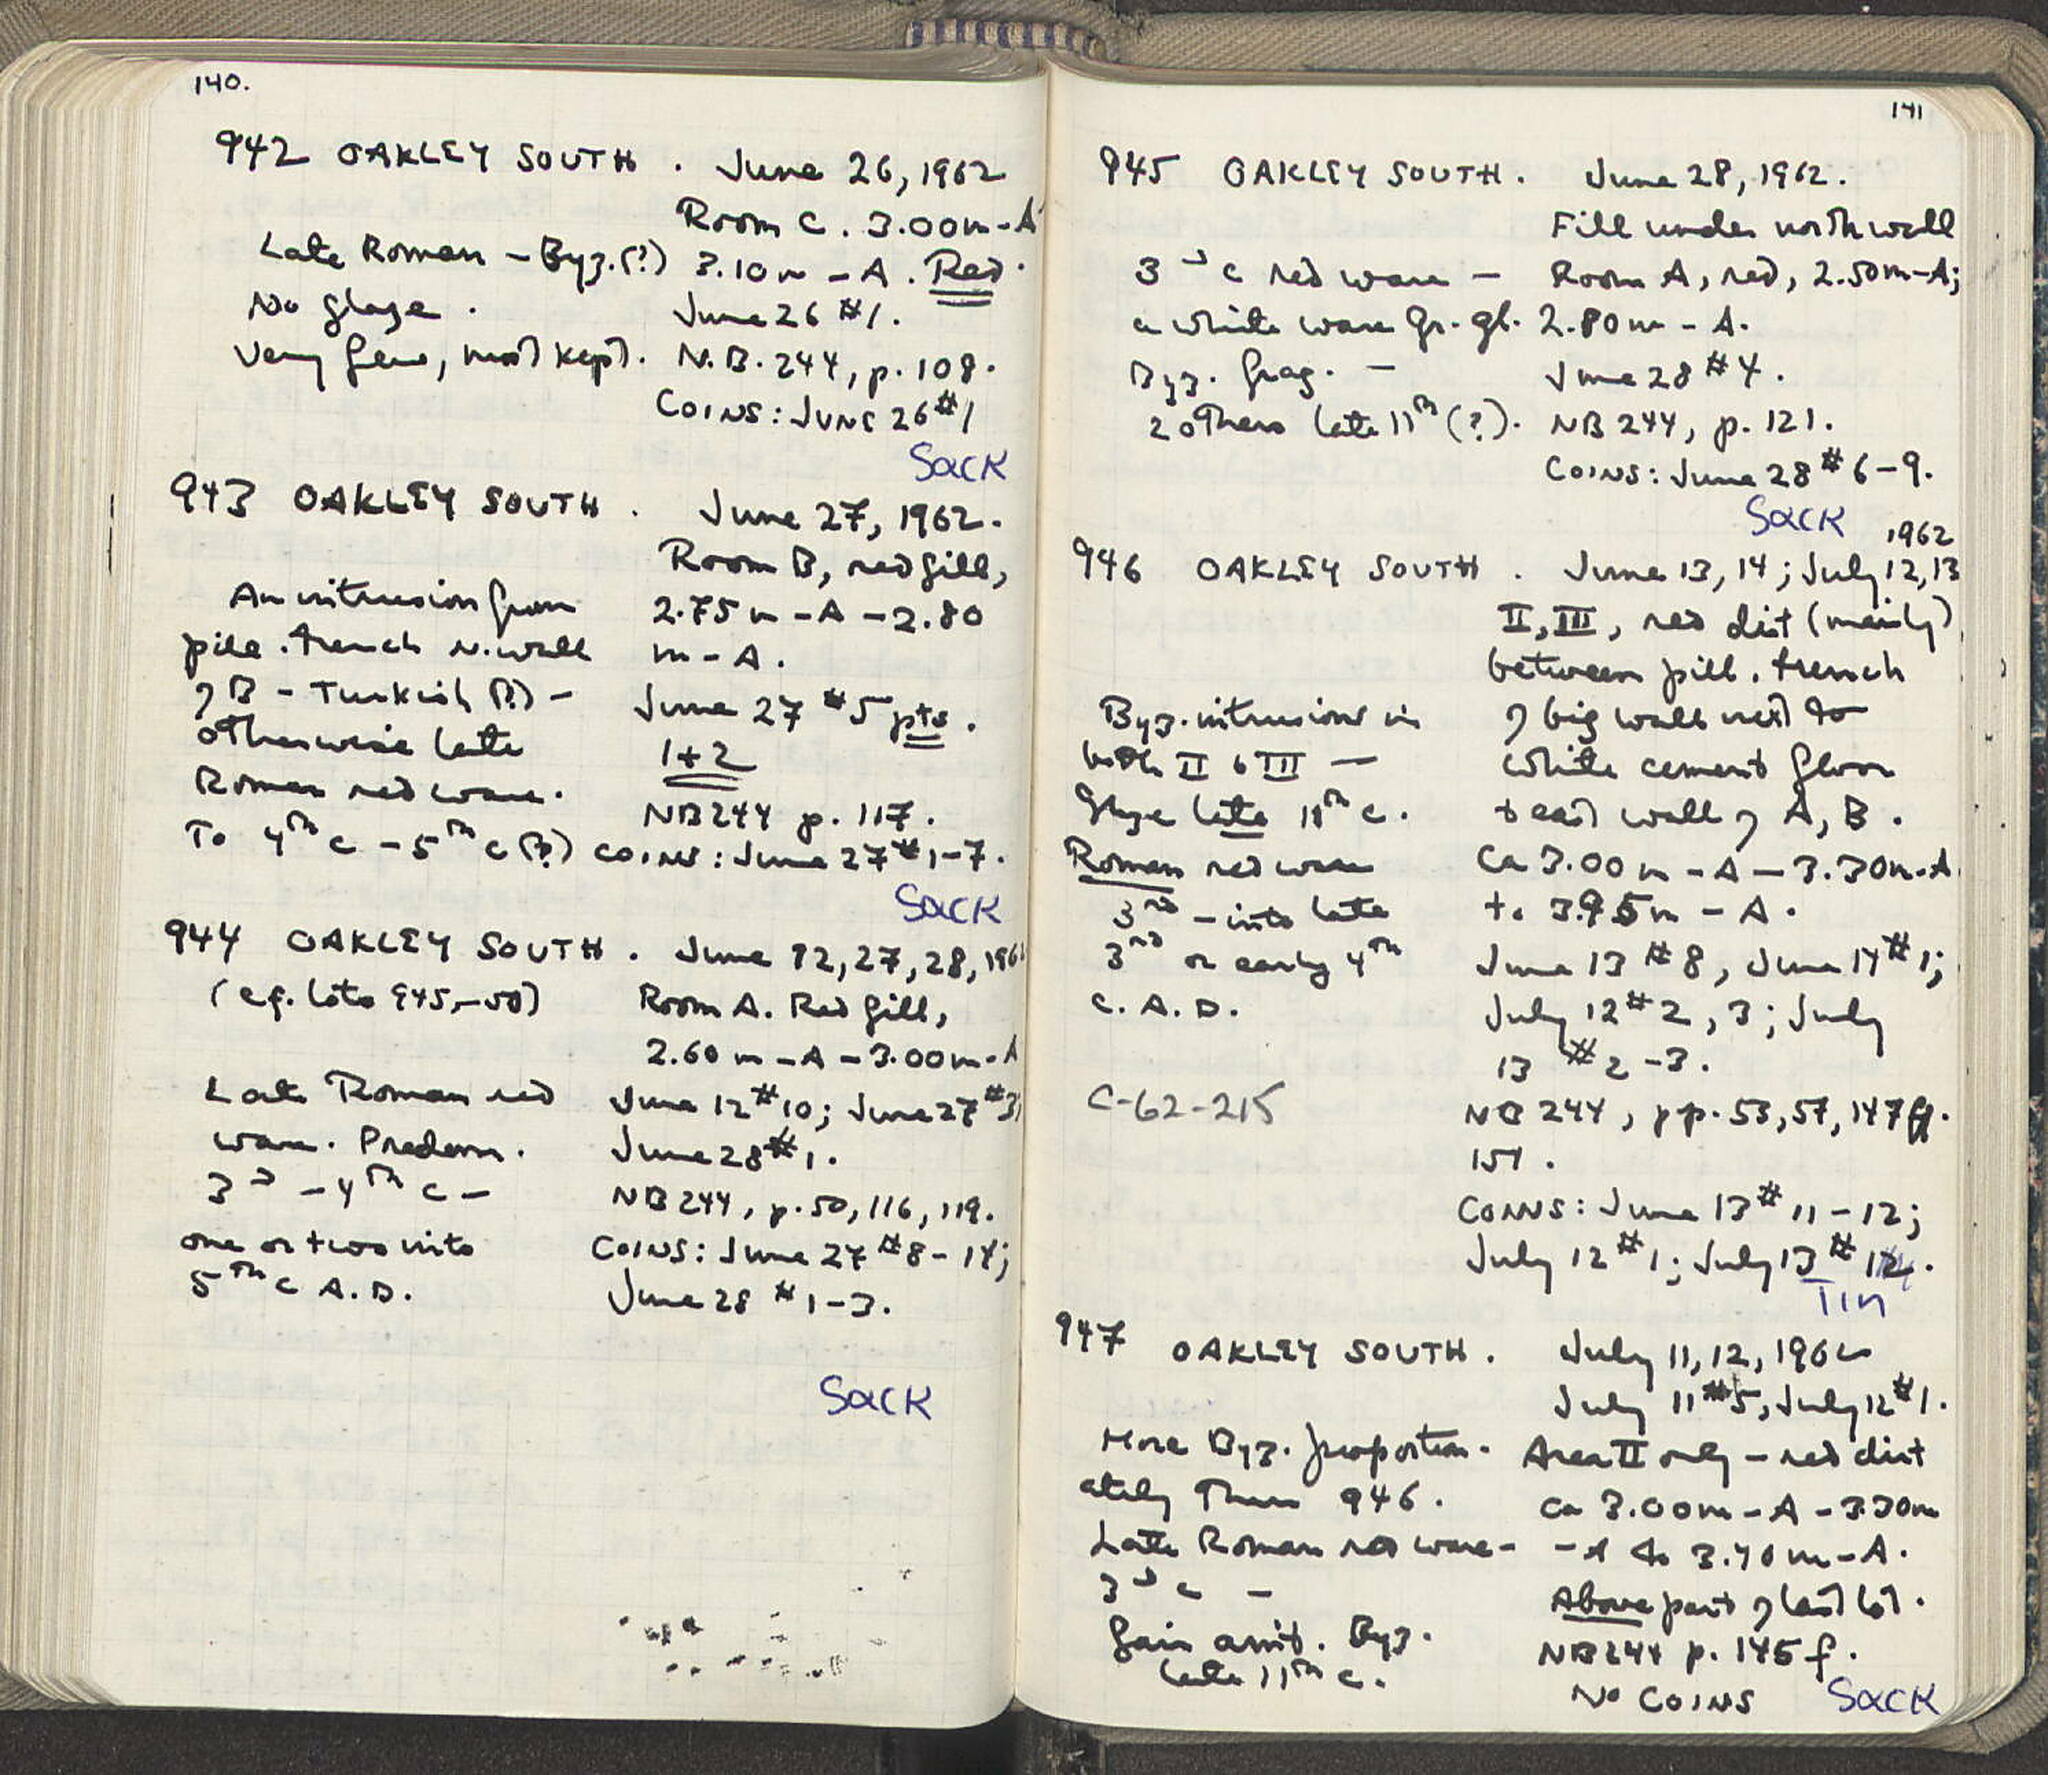 140.
942 OAKLEY SOUTH . June 26, 1962
Room C. 3.00m-A
Late Roman - Byz.(?) 3.10m - A. Red.
No glaze. June 26 #1.
Very few, most kept. N.B. 244, p. 108.
COINS: JUNE 26 #1
Sack
943 OAKLEY SOUTH . June 27, 1962.
Room B, red fill,
An intrusion from 2.75m - A - 2.80
pill. trench N. wall m - A.
of B - Turkish (?) - June 27 #5 pts.
otherwise late 1+2
Roman red ware. NB 244 p. 117.
To 4th c - 5th c (?) COINS: June 27 #1-7.
Sack
944 OAKLEY SOUTH . June 12, 27, 28, 196
(cf. lots 945,-50) Room A. Red fill,
2.60m - A - 3.00m - A
Late Roman red June 12 #10; June 27 #3,
ware. Predom. June 28 #1.
3d - 4th c - NB 244, p. 50, 116, 119.
one or two into COINS: June 27 #8-14;
5th c A.D. June 28 #1-3.
Sack
141
945 OAKLEY SOUTH. June 28, 1962.
Fill under north wall
3d c red ware - Room A, red, 2.50m-A;
a white ware Gr. gl. 2.80m - A.
Byz. frag. - June 28 #4.
2 others late 11th (?). NB 244, p. 121.
COINS: June 28 #6-9.
Sack
1962
946 OAKLEY SOUTH . June 13, 14; July 12, 13
II, III, red dirt (mainly)
between pill. trench
Byz. intrusions in of big wall next to
both II & III - white cement floor
Glaze late 11th c. + east wall of A, B.
Roman red ware Ca 3.00m - A - 3.30m-A
3rd - into late to 3.95m - A.
3rd or early 4th June 13 #8, June 14 #1;
c. A.D. July 12 #2, 3; July
13 #2-3.
C-62-215 NB 244, pp. 53, 57, 147ff.
151.
COINS: June 13 #11-12;
July 12 #1; July 13 #
Tin
947 OAKLEY SOUTH. July 11, 12, 1962
July 11 #5, July 12 #1.
More Byz. proportion- Area II only - red dirt
ately than 946. Ca 3.00m - A - 3.30m
Late Roman red ware - - A to 3.40m - A.
3d c - Above part of last lot.
Fair amt. Byz. NB 244 p. 145 f.
late 11th c. No COINS Sack